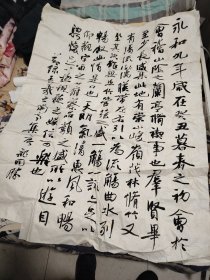 永和九年歲在癸丑暮春之初會於
會稽山陰之蘭亭脩禊事也群賢畢
至少長咸集此地有崇山峻嶺茂林脩竹又
有清流激湍映帶左右引以為流觴曲水列
坐其次雖無絲竹管絃之盛一觴一詠亦足以
暢敘幽情是日也天朗氣清惠風和暢
仰觀宇宙之大俯察品類之盛所以遊目
騁懷足以極視聽之娛信可樂也